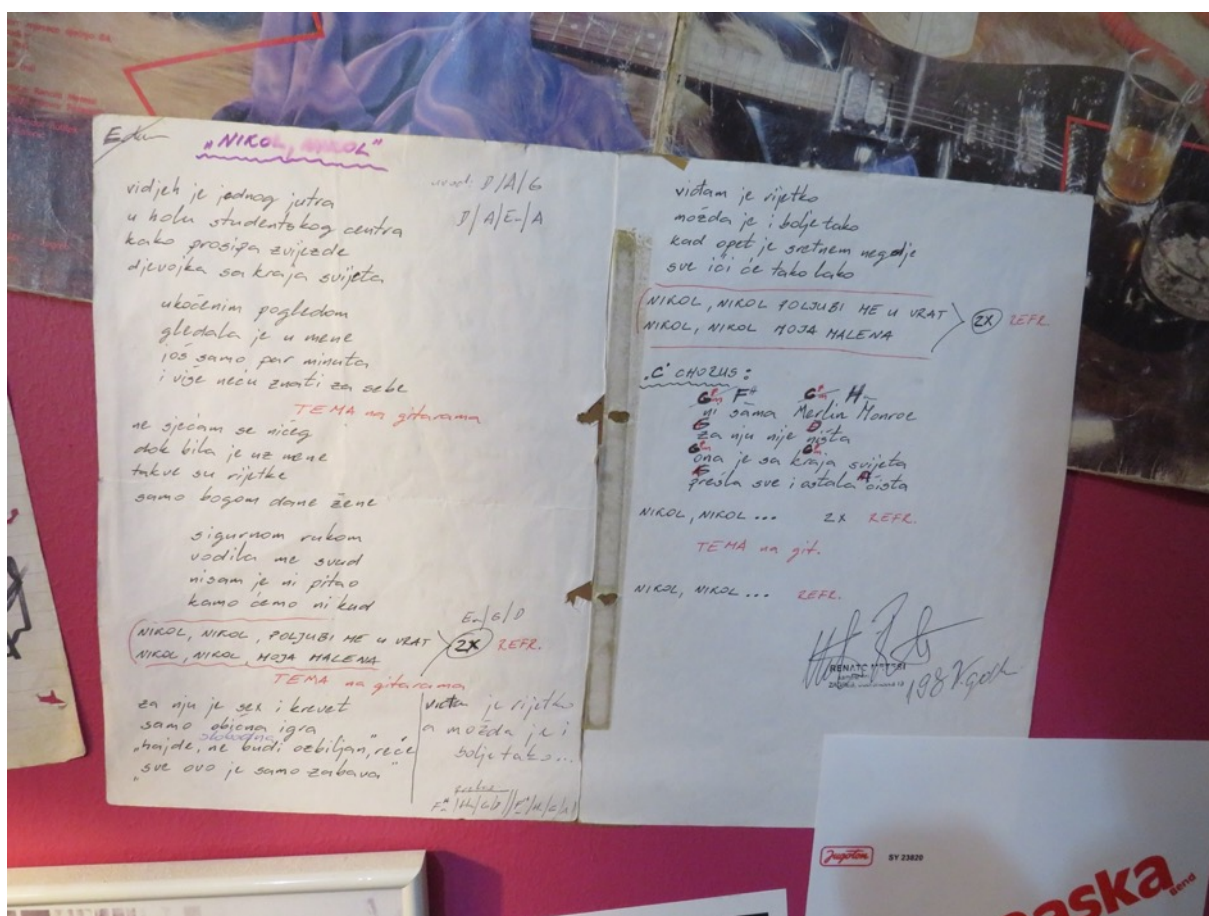 "NIKOL, NIKOL"
uvod: D/A/G
D/A/E-/A
vidjeh je jednog jutra
u holu studentskog centra
kako prosipa zvijezde
djevojka sa kraja svijeta
ukočenim pogledom
gledala je u mene
još samo par minuta
i više neću znati za sebe
TEMA na gitarama
ne sjećam se ničeg
dok bila je uz mene
takve su rijetke
samo bogom dane žene
sigurnom rukom
vodila me svud
nisam je ni pitao
kamo ćemo ni kud
E-/G/D
NIKOL, NIKOL, POLJUBI ME U VRAT
NIKOL, NIKOL, MOJA MALENA
2X REFR.
TEMA na gitarama
za nju je sex i krevet
samo obična igra
slobodna
"hajde, ne budi ozbiljan," reče
"sve ovo je samo zabava"
viđa je rijetko
a možda je i
bolje tako...
viđam je rijetko
možda je i bolje tako
kad opet je sretnem negdje
sve ići će tako lako
NIKOL, NIKOL POLJUBI ME U VRAT
NIKOL, NIKOL MOJA MALENA
2X REFR.
"C" CHORUS:
F# H-
ni sama Merlin Monroe
G D
za nju nije ništa
ona je sa kraja svijeta
A
prešla sve i ostala čista
NIKOL, NIKOL... 2X REFR.
TEMA na git.
NIKOL, NIKOL... REFR.
RENATO
198
Jugoton
SY 23020
aska
Bend